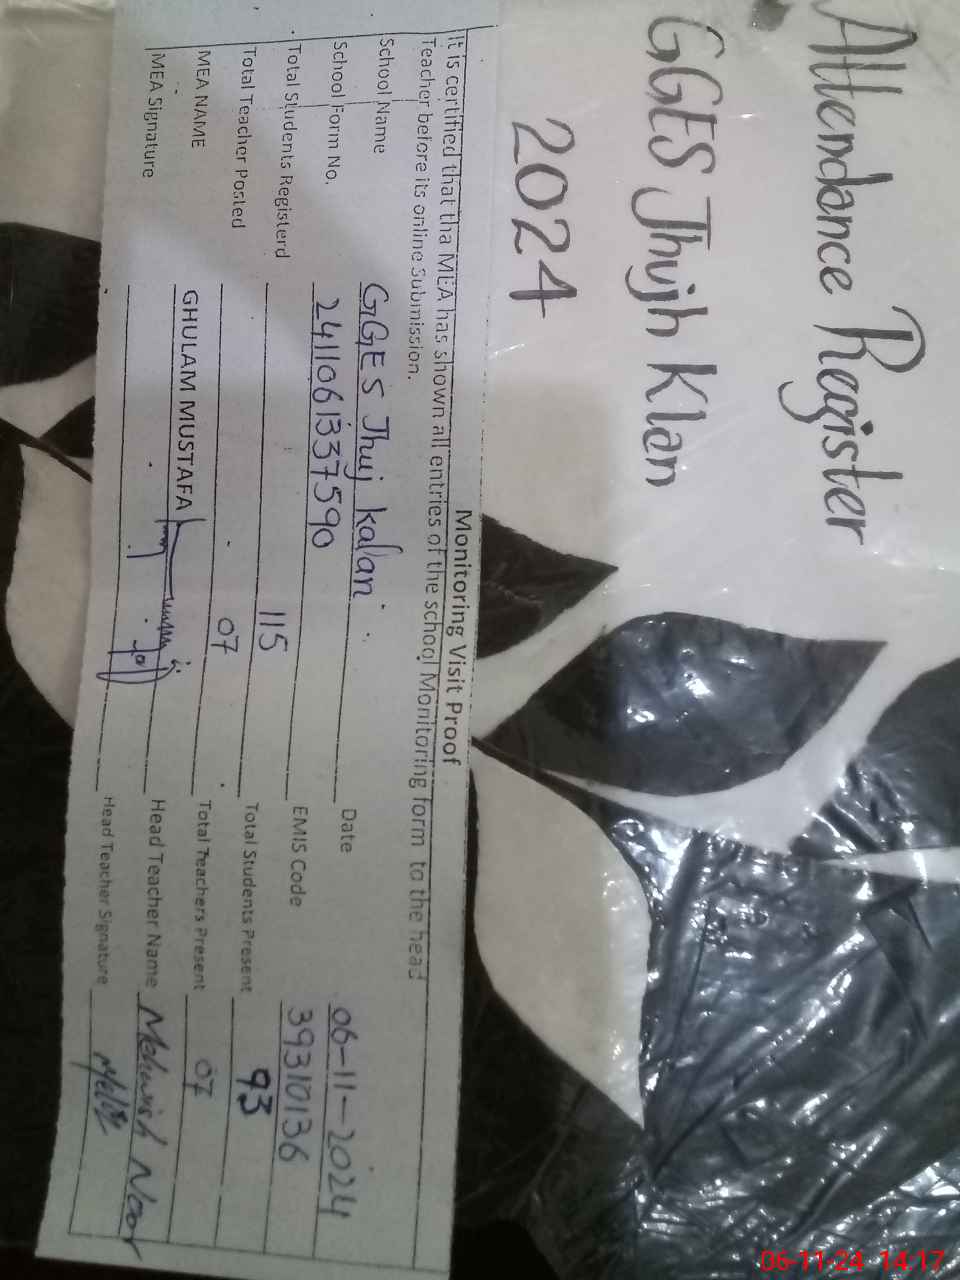 Attendance Register
GGES Jhujh Klan
2024
Monitoring Visit Proof
It is certified that tha MEA has shown all entries of the school Monitoring form to the head
Teacher before its online Submission.
School Name GGES Jhuj kalan Date 06-11-2024
School Form No. 2411061337590 EMIS Code 39310136
Total Students Registerd 115 Total Students Present 93
Total Teacher Posted 07 Total Teachers Present 07
MEA NAME GHULAM MUSTAFA Head Teacher Name Mehwish Noor
MEA Signature Head Teacher Signature
06-11-24 14:17